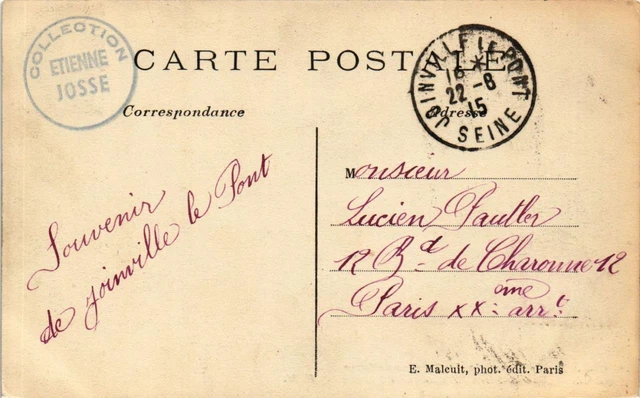 COLLECTION
ETIENNE
JOSSE
CARTE POSTALE
JOINVILLE LE PONT
16 *
22 -8
15
SEINE
Correspondance
Adresse
Souvenir
de Joinville le Pont
Monsieur
Lucien Pautler
12 Bd de Charonne 12
Paris XXème arrt
E. Malcuit, phot. édit. Paris